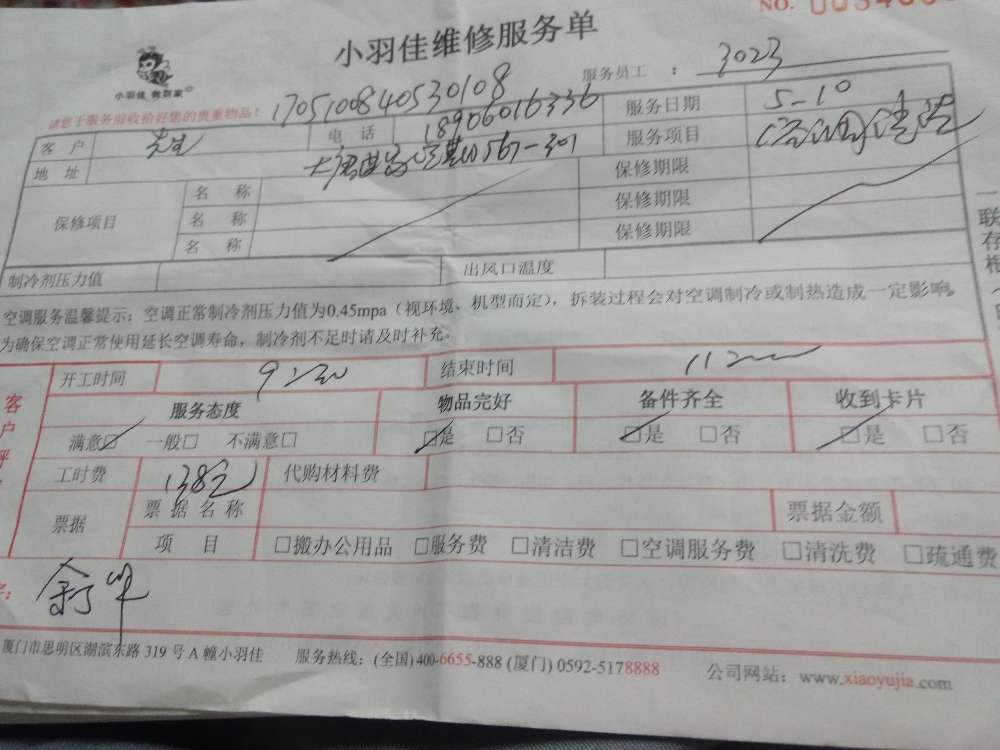 NO.
小羽佳维修服务单
小羽佳 帮到家
服务员工 : 3023
请您于服务前收拾好您的贵重物品!
1705100840530108
客 户 先生 电 话 18906016336 服务日期 5-10
地 址 567-301 服务项目 清洗
保修项目 名 称 保修期限
名 称 保修期限
名 称 保修期限
制冷剂压力值 出风口温度
空调服务温馨提示:空调正常制冷剂压力值为0.45mpa(视环境、机型而定),拆装过程会对空调制冷或制热造成一定影响,
为确保空调正常使用延长空调寿命,制冷剂不足时请及时补充。
开工时间 9:30 结束时间 11:00
服务态度 物品完好 备件齐全 收到卡片
满意☑ 一般□ 不满意□ ☑是 □否 ☑是 □否 ☑是 □否
工时费 138元 代购材料费
票据 票据名称 票据金额
项 目 □搬办公用品 □服务费 □清洁费 □空调服务费 □清洗费 □疏通费
厦门市思明区湖滨东路 319 号 A 幢小羽佳 服务热线:(全国) 400-6655-888 (厦门) 0592-5178888 公司网站:www.xiaoyujia.com
联
存
根
客
户